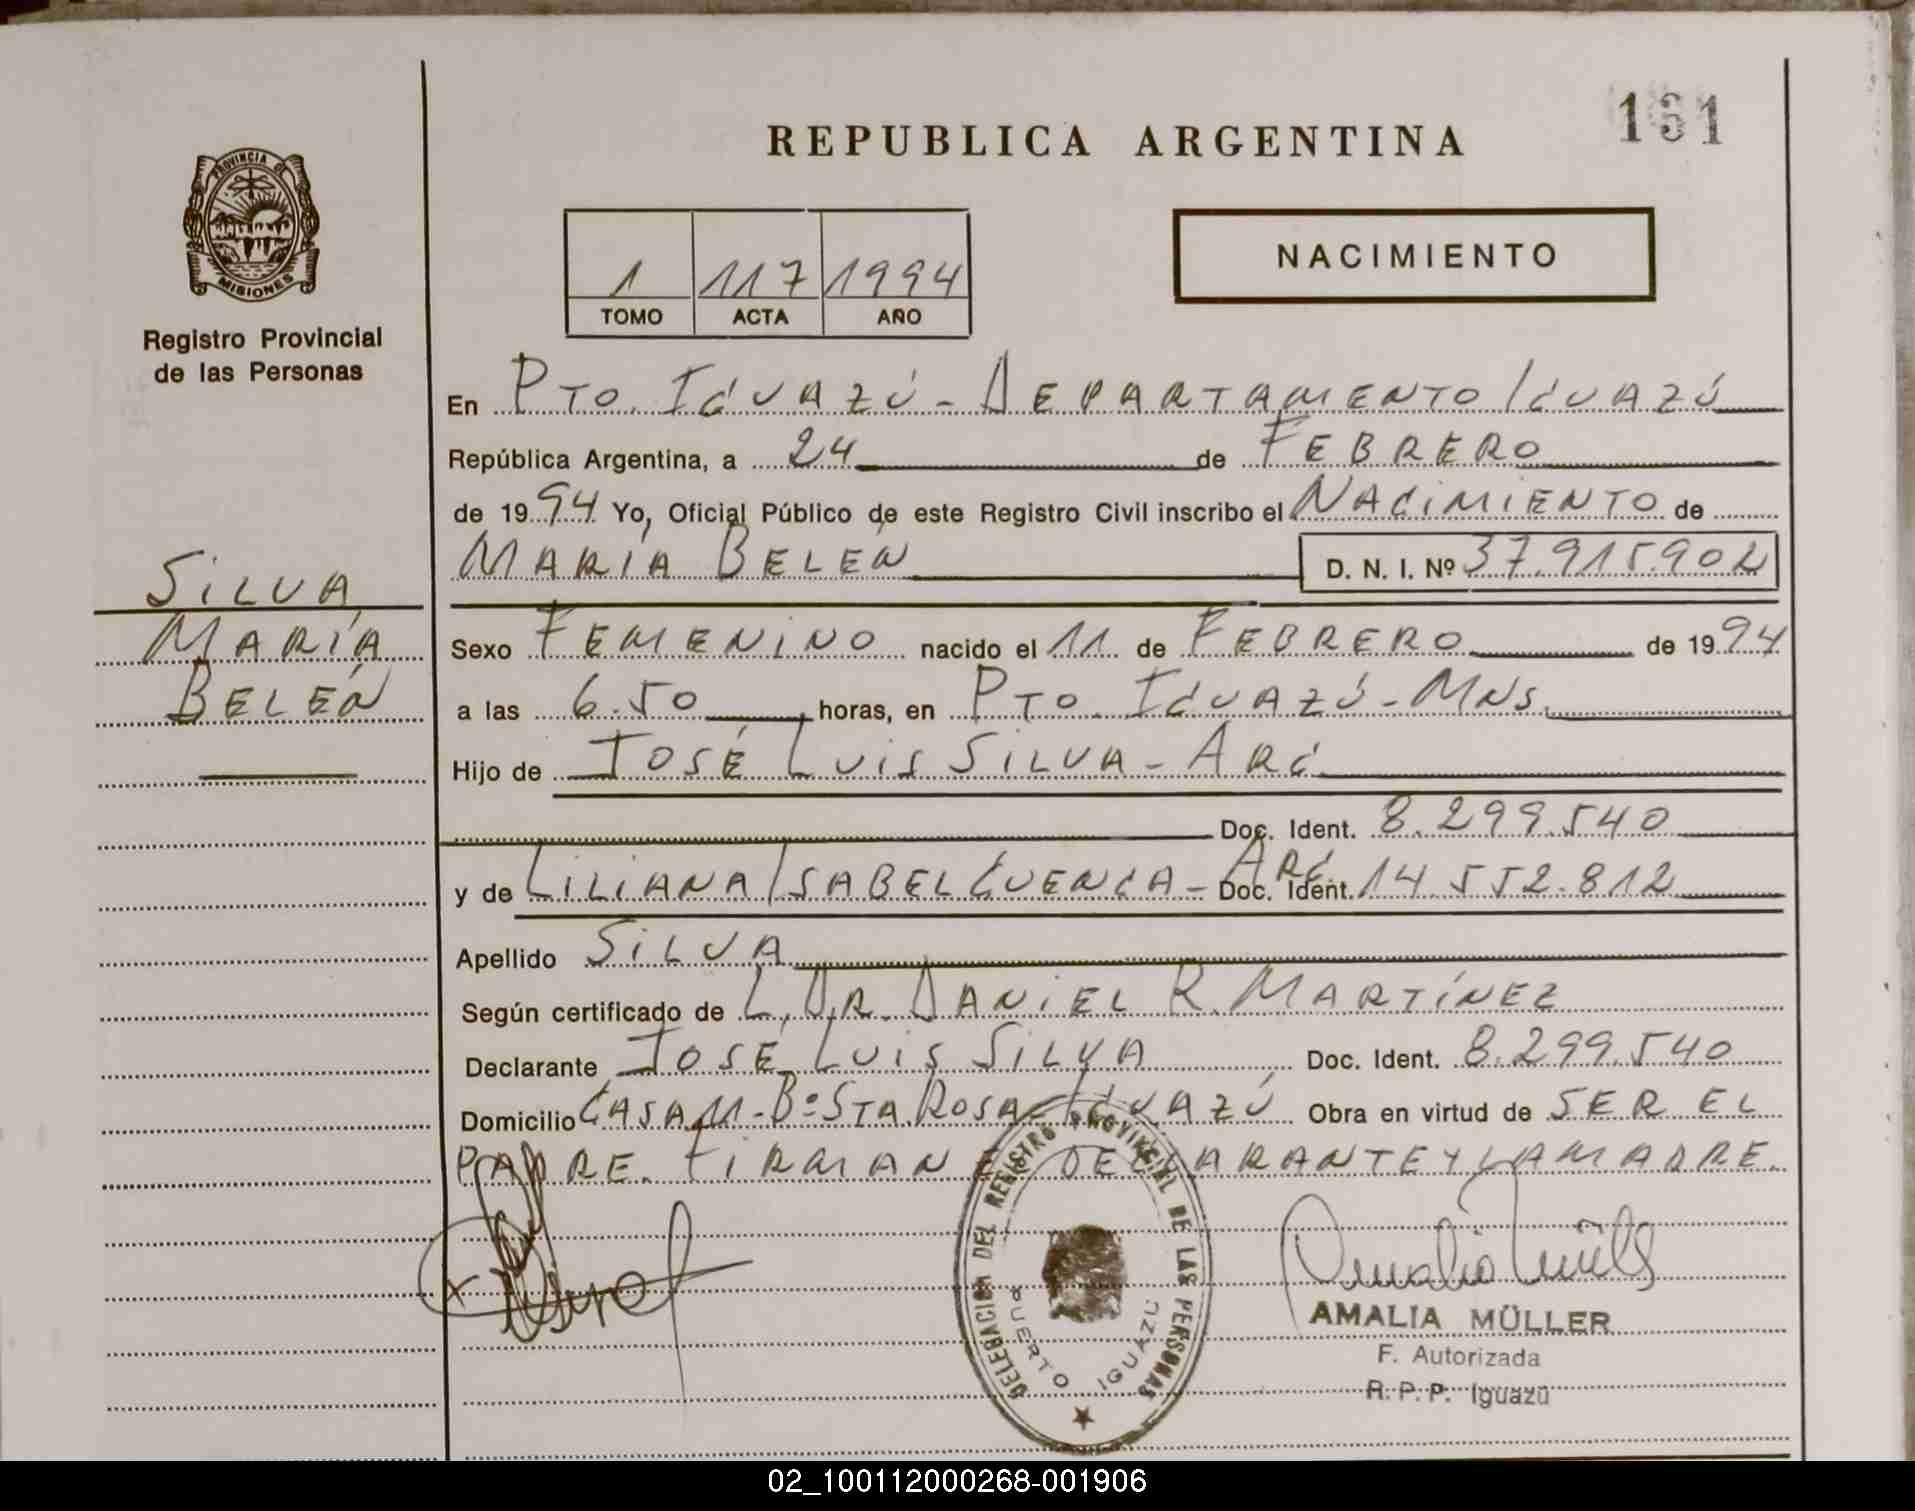 131
REPUBLICA ARGENTINA
PROVINCIA DE
MISIONES
Registro Provincial
de las Personas
1 117 1994
TOMO ACTA AÑO
NACIMIENTO
En PTO. IGUAZÚ - DEPARTAMENTO IGUAZÚ
República Argentina, a 24 de FEBRERO
de 1994 Yo, Oficial Público de este Registro Civil inscribo el NACIMIENTO de
MARÍA BELÉN D. N. I. Nº 37.915.902
SILVA
MARÍA
BELÉN
Sexo FEMENINO nacido el 11 de FEBRERO de 1994
a las 6.50 horas, en PTO. IGUAZÚ - MNS.
Hijo de JOSÉ LUIS SILVA - ARG
Doc. Ident. 8.299.540
y de LILIANA ISABEL CUENCA - ARG. Doc. Ident. 14.552.812
Apellido SILVA
Según certificado de L. DR. DANIEL R. MARTÍNEZ
Declarante JOSÉ LUIS SILVA Doc. Ident. 8.299.540
Domicilio CASA 11 - Bº STA. ROSA - IGUAZÚ Obra en virtud de SER EL
PADRE. FIRMAN EL DECLARANTE Y LA MADRE.
DELEGACION DEL REGISTRO PROVINCIAL DE LAS PERSONAS
PUERTO IGUAZU
AMALIA MÜLLER
F. Autorizada
R. P. P. Iguazú
02_100112000268-001906